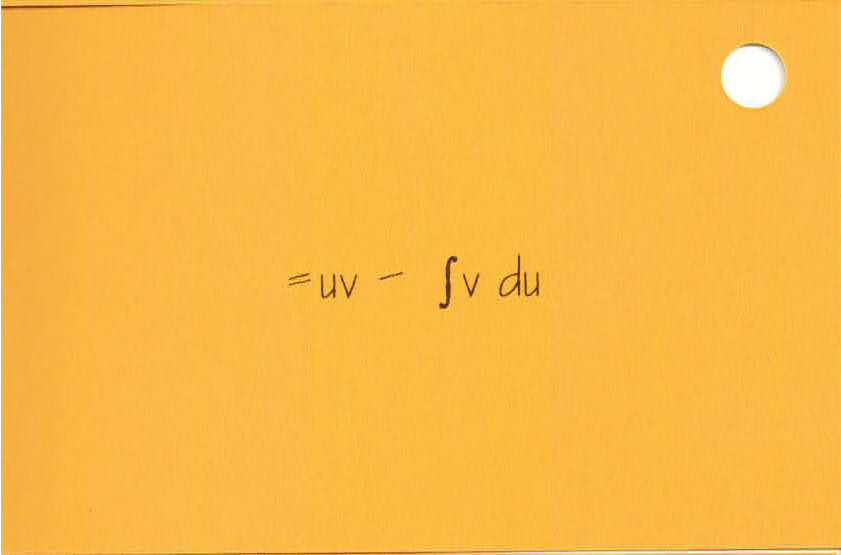 = uv - ∫v du